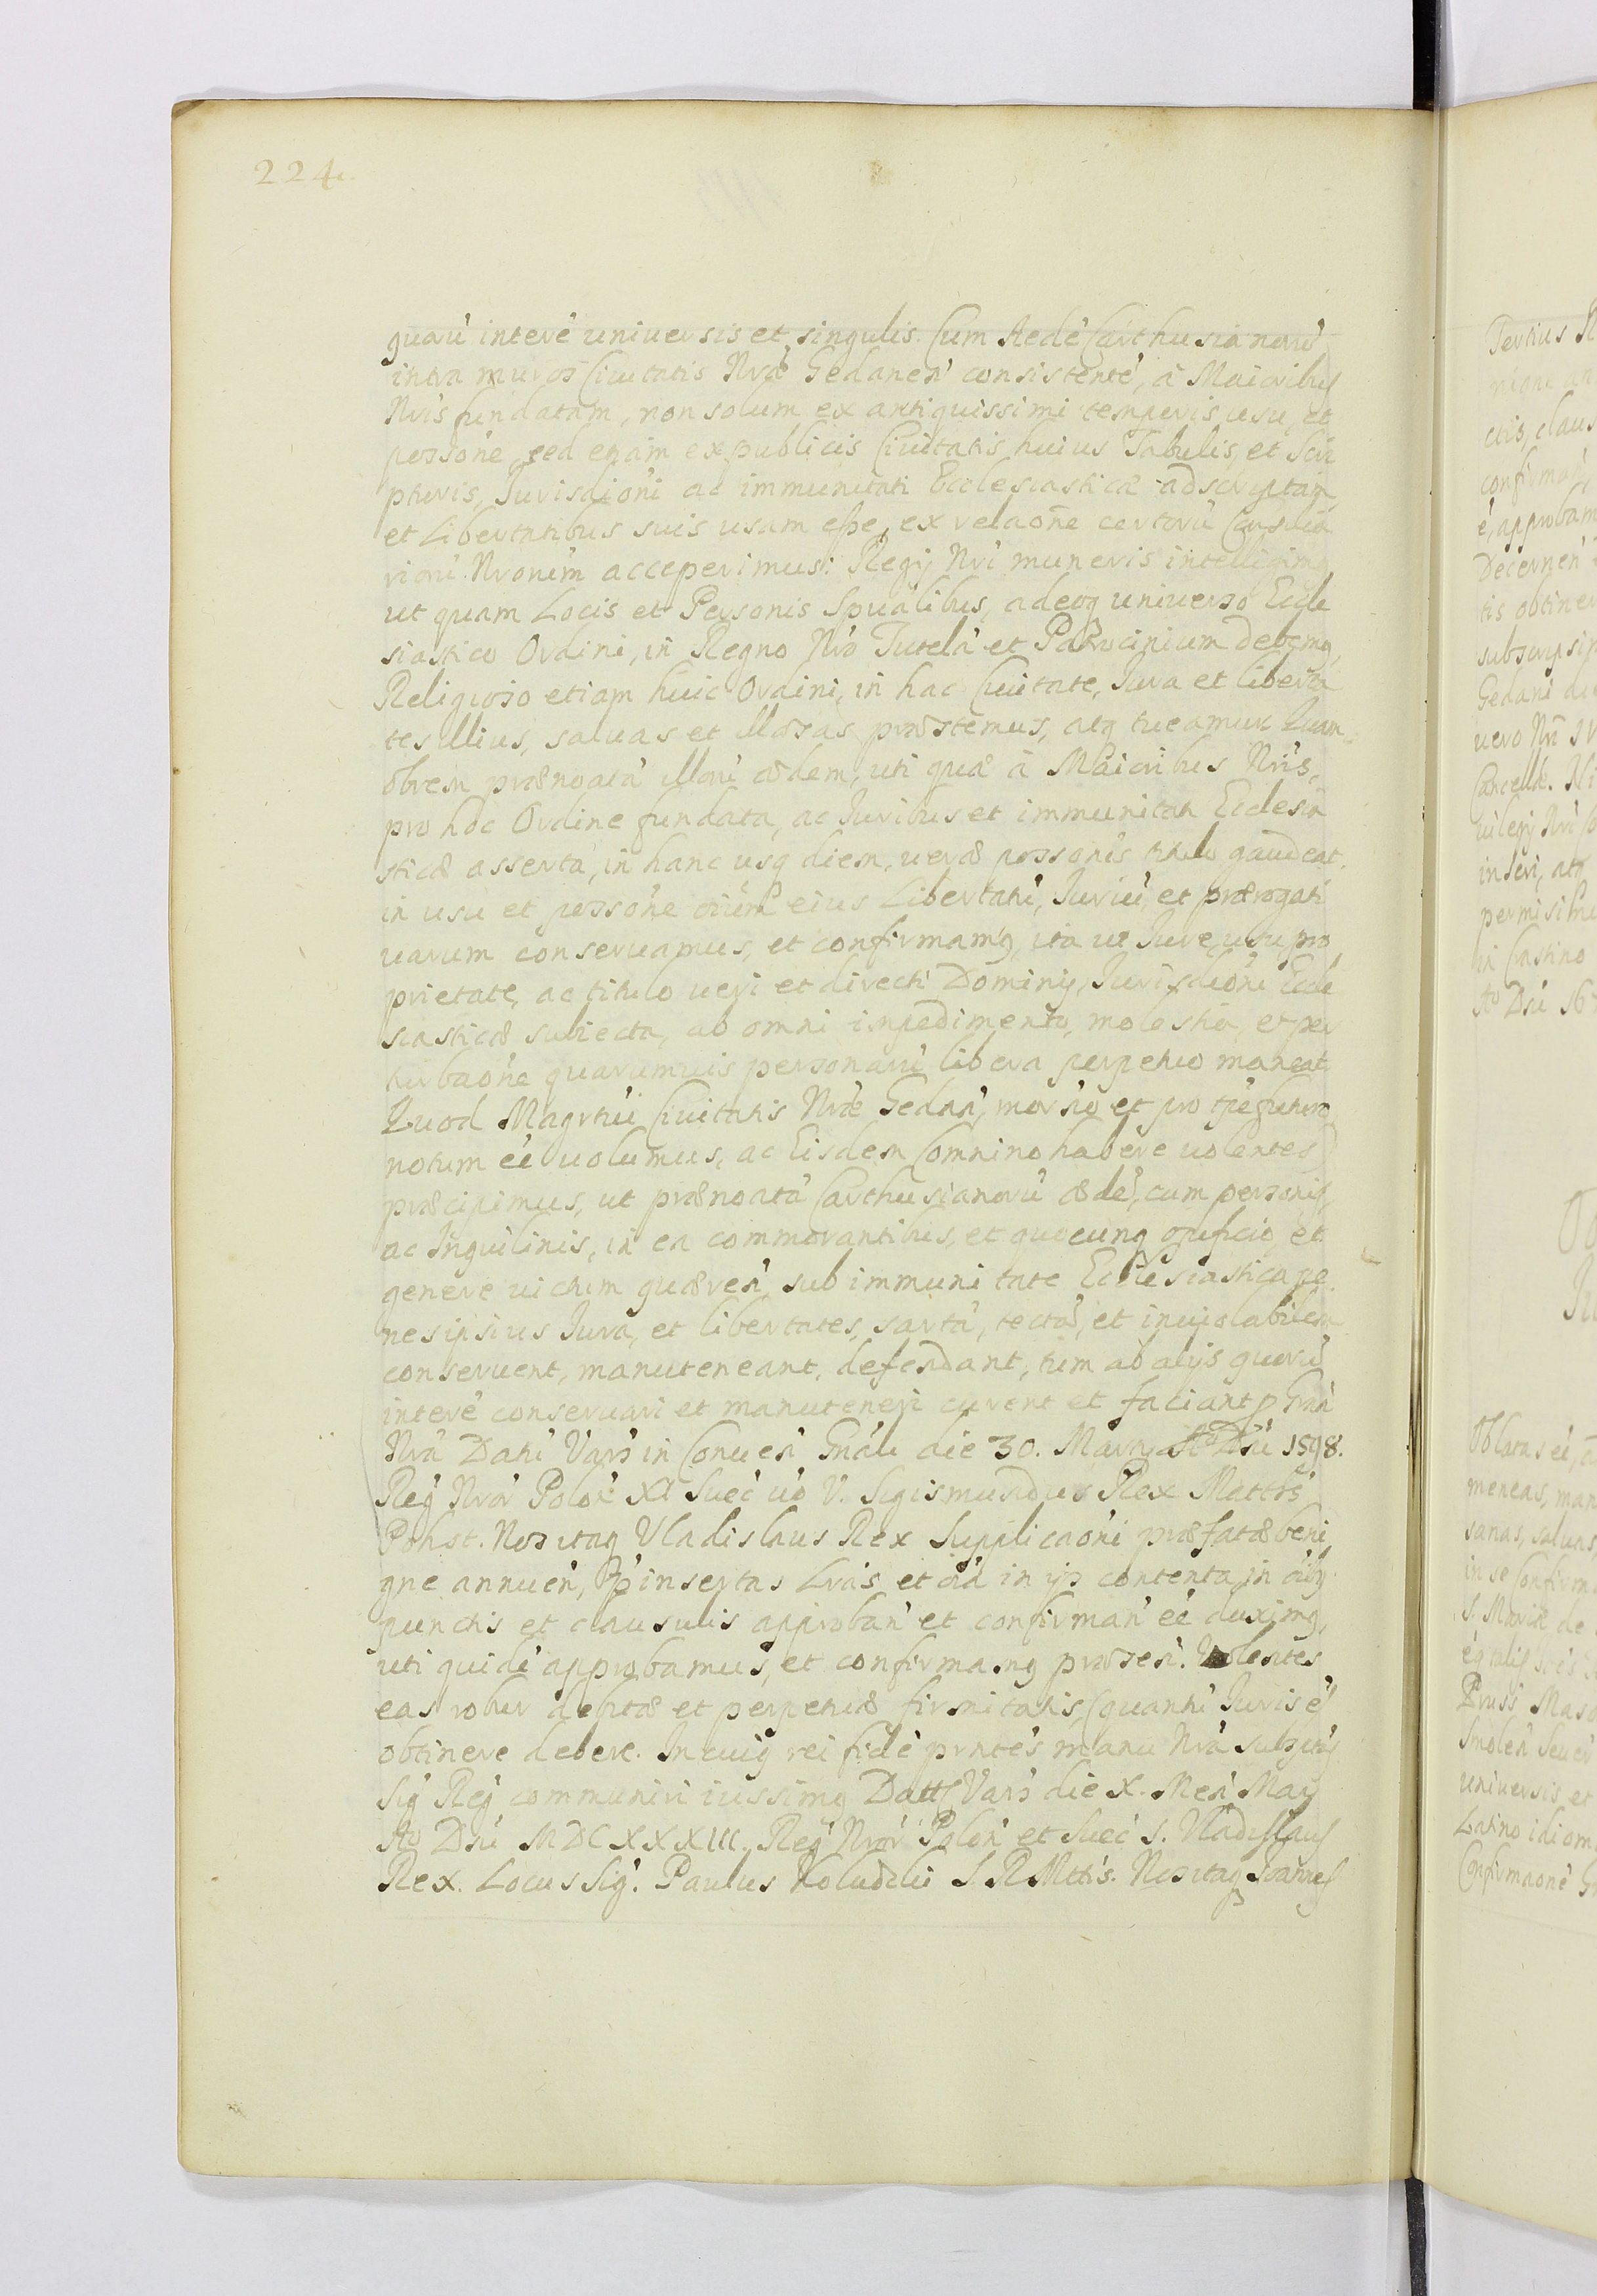 224.
quarũ interẽ uniuersis et singulis. Cum Aedẽ Carthusianorũ
intra muros Ciuitatis Nrã Gedaneñ consistentẽ, à Maioribus
Nris fundatam, non solum ex antiquissimi temporis usu, et
possõne, sed etiam ex publicis Ciuitatis huius Tabulis, et Scri
pturis, Jurisdiõni ac immunitati Ecclesiasticã adscriptam
et Libertatibus suis usam esse, ex relaõne certorũ Consilia
riorũ Nrorum acceperimus: Regij Nri muneris intelligimq
ut quam Locis et Personis Spualibus, adeoq uniuerso Eccle
siastico Ordini, in Regno Nrõ Tutelã et Patrocinium debemq,
Religioso etiam huic Ordini, in hac Ciuitate, Jura et liberta
tes illius, saluas et illæsas præstemus, atq tueamur. Quam
obrem prænoatã illorũ ædem, uti quæ à Maioribus Nris,
pro hoc Ordine fundata, ac Juribus et immunitati Ecclesia
sticæ asserta, in hanc usq diem, ueræ possonis titulo gaudeat,
in usu et possõne oium eius Libertatũ, Juriũ, et prærogati
uarum conseruamus, et confirmamq, ita ut Jure, usu, pro
prietate, ac titulo ueri et directi Dominij, Jurisdiõni Eccle
siasticæ subiecta, ab omni impedimento, molestia, et per
turbaõne quarumuis personarũ libera perpetuo maneat.
Quod Magrtui Ciuitatis Nræ Gedañ, mor no et pro tpe futuro
notum eé uolumus, ac Eisdem omnino habere uolentes
præcipimus, ut prænoatã Carthusianorũ ædẽ, cum personis,
ac Inquilinis, in ea commorantibus, et quocunq opificio et
genere uictum quæreñ, sub immunitate Ecclesiastica pe
nes ipsius Jura, et libertates, sartã, tectã, et inuiolabilem
conseruent, manuteneant, defendant, tum ab alijs quorũ
interẽ conseruari et manuteneri curent et faciant p Grañ
Nrã Datũ Vars in Conueñ Gnali die 30. Marty Aº Dni 1598.
Reg Nror Polon XI Suec uo V. Sigismundus Rex Matths
Pohst. Nos itaq Vladislaus Rex Supplicaõni præfatæ beni
gne annueñ, pinsertas Lras et oia in ijs contenta, in oiby
punctis et clausulis approbañ et confirmañ eé duximq,
uti quidẽ approbamus, et confirmamq præseñ. Volentes
eas robur debitæ et perpetuæ firmitatis, quanti Juris e
obtinere debere. In cuiq rei fidẽ pntes manu Nrã subscr
Sig Reg communiri iussimq Datt Vars die X. Meñ May
Aº Dni MDCXXXIII. Reg Nror Polon et Suec S. Vladislaus
Rex. Locus Sig. Paulus Koludzki S. R Mttis. Nos itaq Ioannes
Tertius R
ctis, claus
confirma
é, approbam
Decerneñ
tis obtiner
subscripsi
Gedani di
uero Nri
Cancell.
uilegij Nri
inseri, at
permisimu
in Castino
Aº Dni 16
Oblatas eé,
meneas, man
sanas, saluas,
in se Confirm
S. Mariæ de
Pruss Maso
Smoleñ Seueri
uniuersis et
Latino idiom
Confirmaõne G